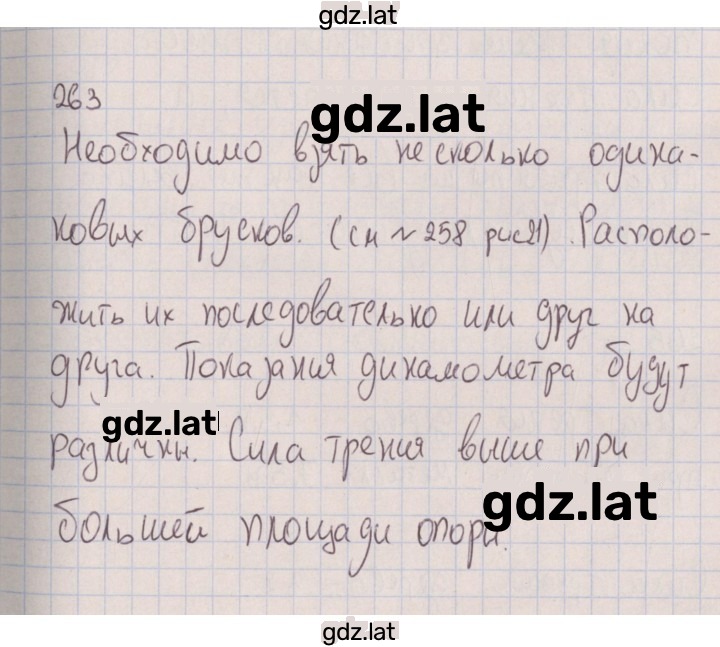 gdz.lat
263
gdz.lat
Необходимо взять несколько одина-
ковых брусков. (см ~ 258 рис21). Располо-
жить их последовательно или друг на
друга. Показания динамометра будут
gdz.lat
различны. Сила трения выше при
gdz.lat
большей площади опоры.
gdz.lat